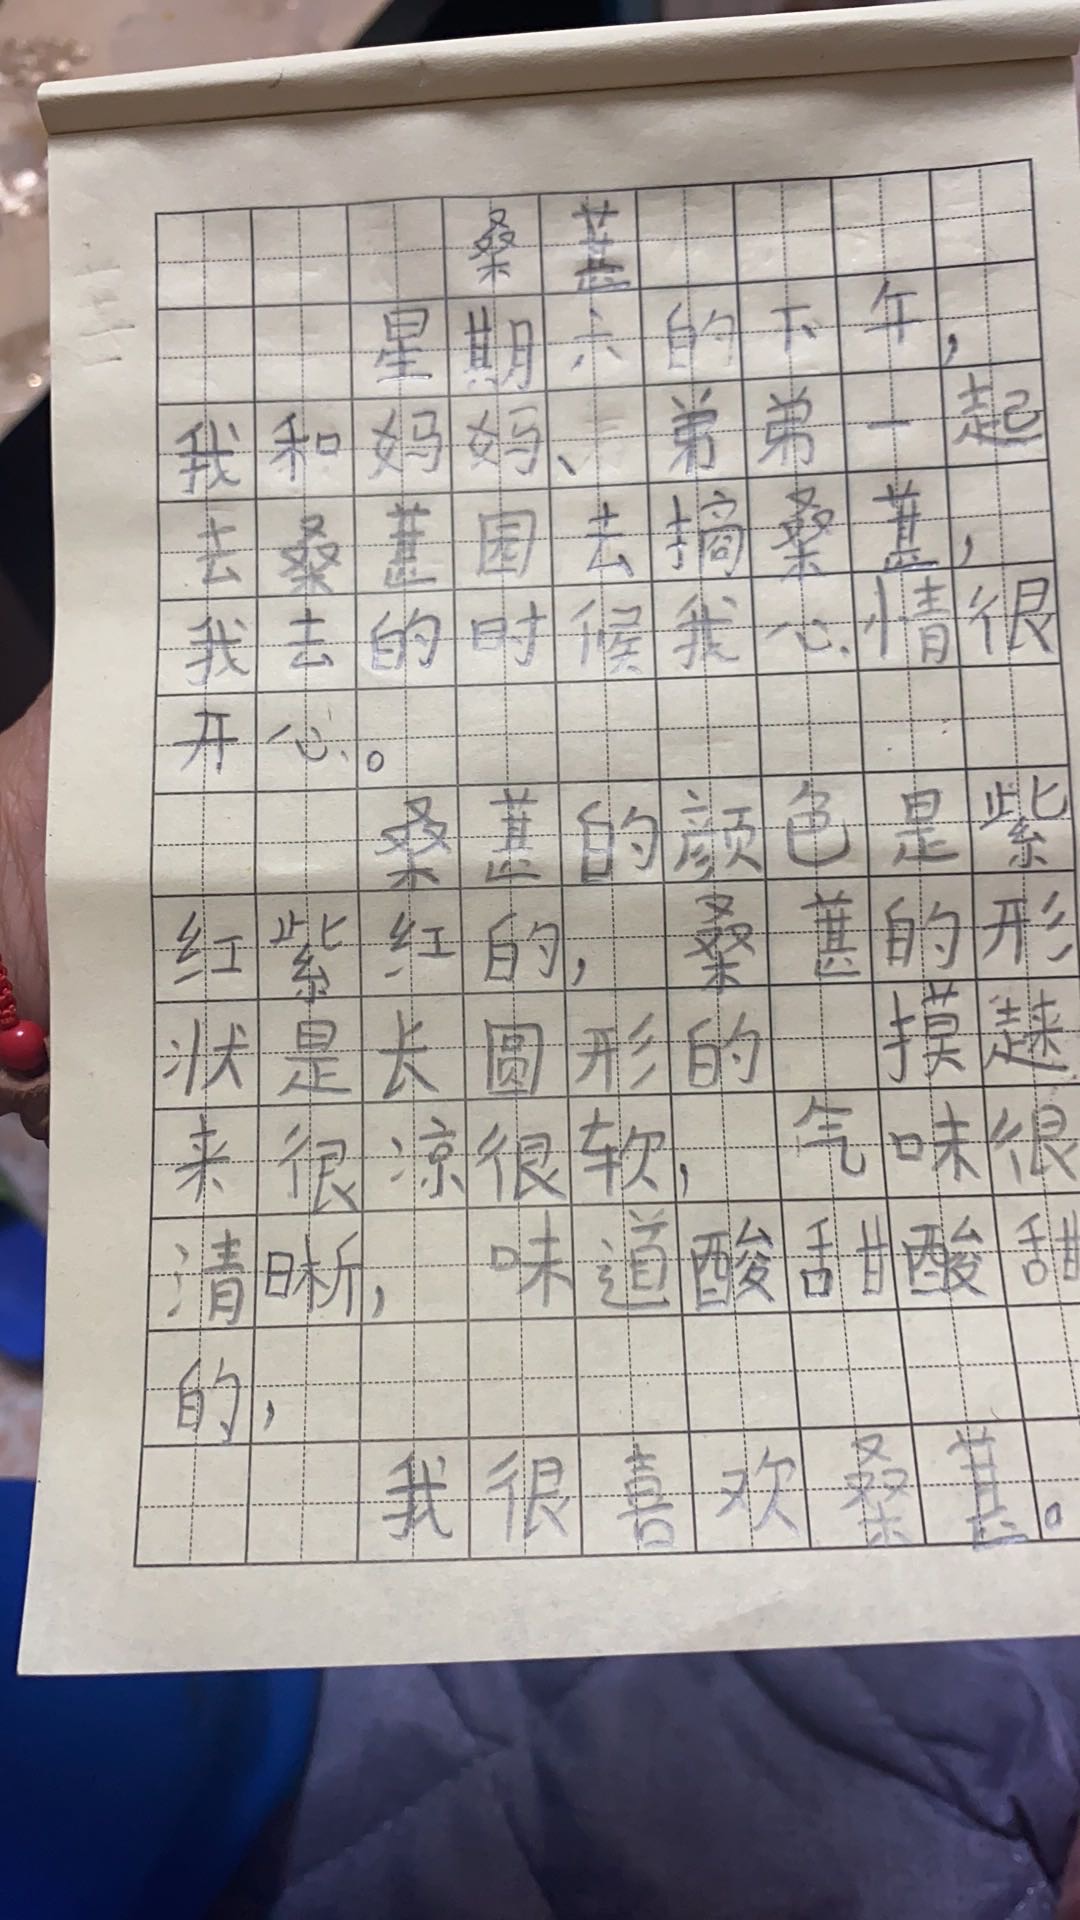 桑葚
星期六的下午，
我和妈妈、弟弟一起
去桑葚园去摘桑葚，
我去的时候我心情很
开心。
桑葚的颜色是紫
红紫红的，桑葚的形
状是长圆形的 摸
来很凉很软，气味很
清晰，味道酸甜酸甜
的，
我很喜欢桑葚。